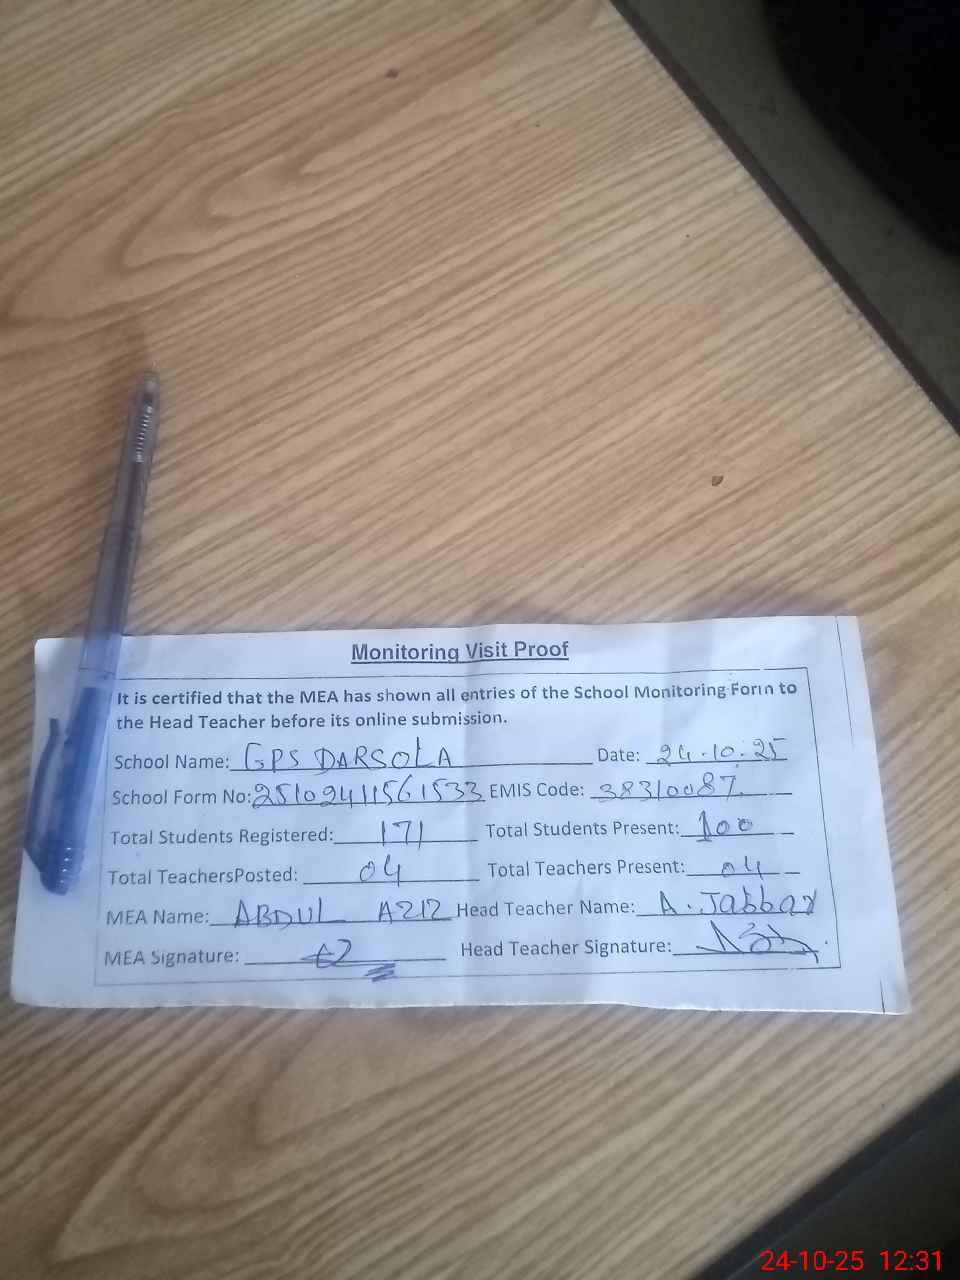 Monitoring Visit Proof
It is certified that the MEA has shown all entries of the School Monitoring Form to
the Head Teacher before its online submission.
School Name: GPS DARSOLA Date: 24.10.25
School Form No: 25102411561533 EMIS Code: 38310087
Total Students Registered: 171 Total Students Present: 100
Total TeachersPosted: 04 Total Teachers Present: 04
MEA Name: ABDUL AZIZ Head Teacher Name: A. Jabbar
MEA Signature: Head Teacher Signature:
24-10-25 12:31